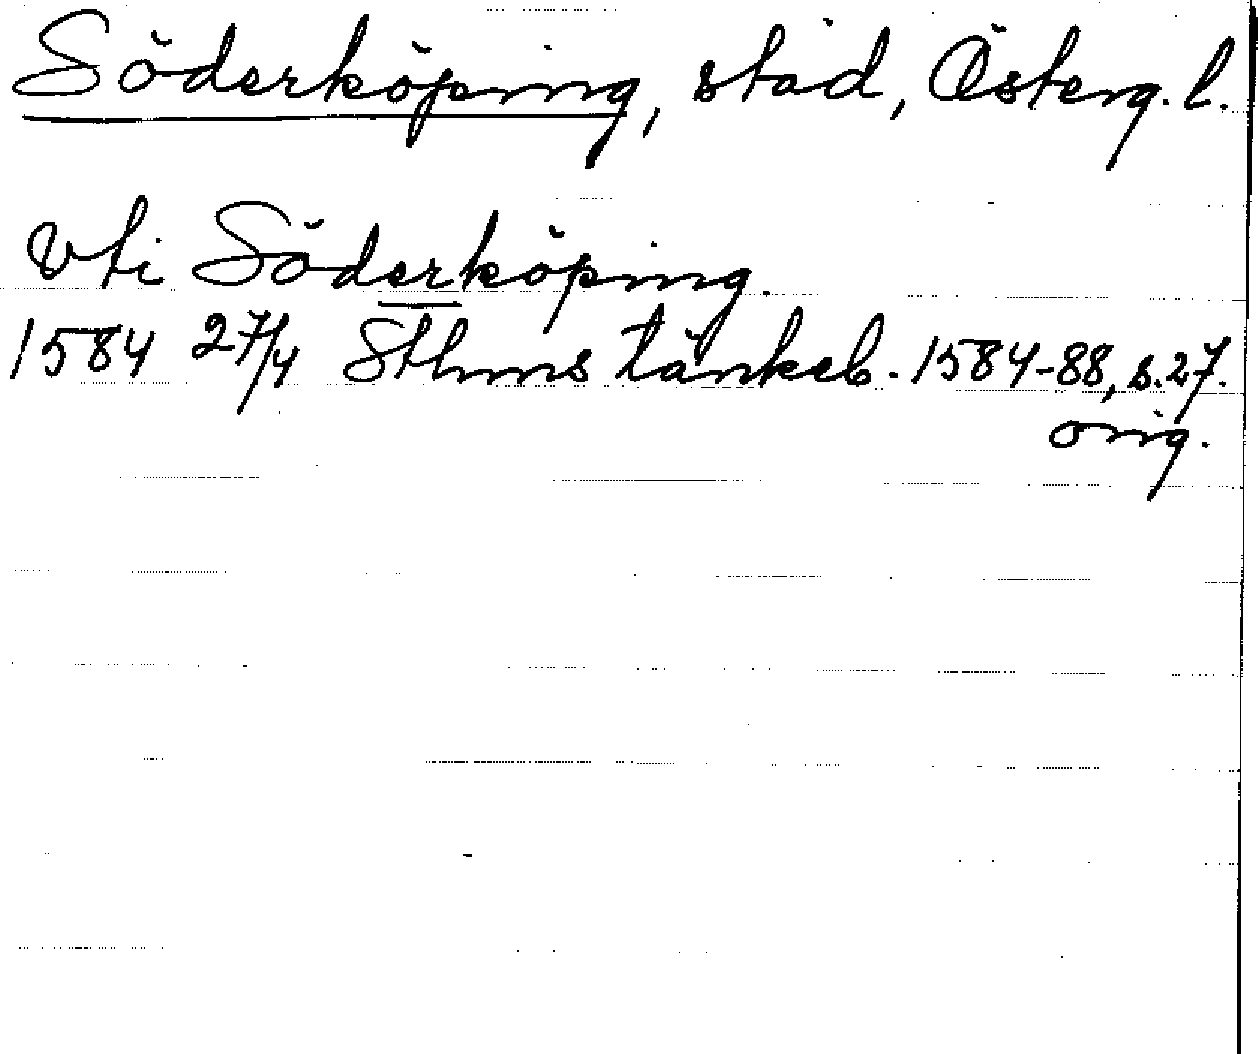 Söderköping, stad, Österg. l.
Vti Söderköping.
1584 27/4 Sthms tänkeb. 1584-88, s. 27.
orig.